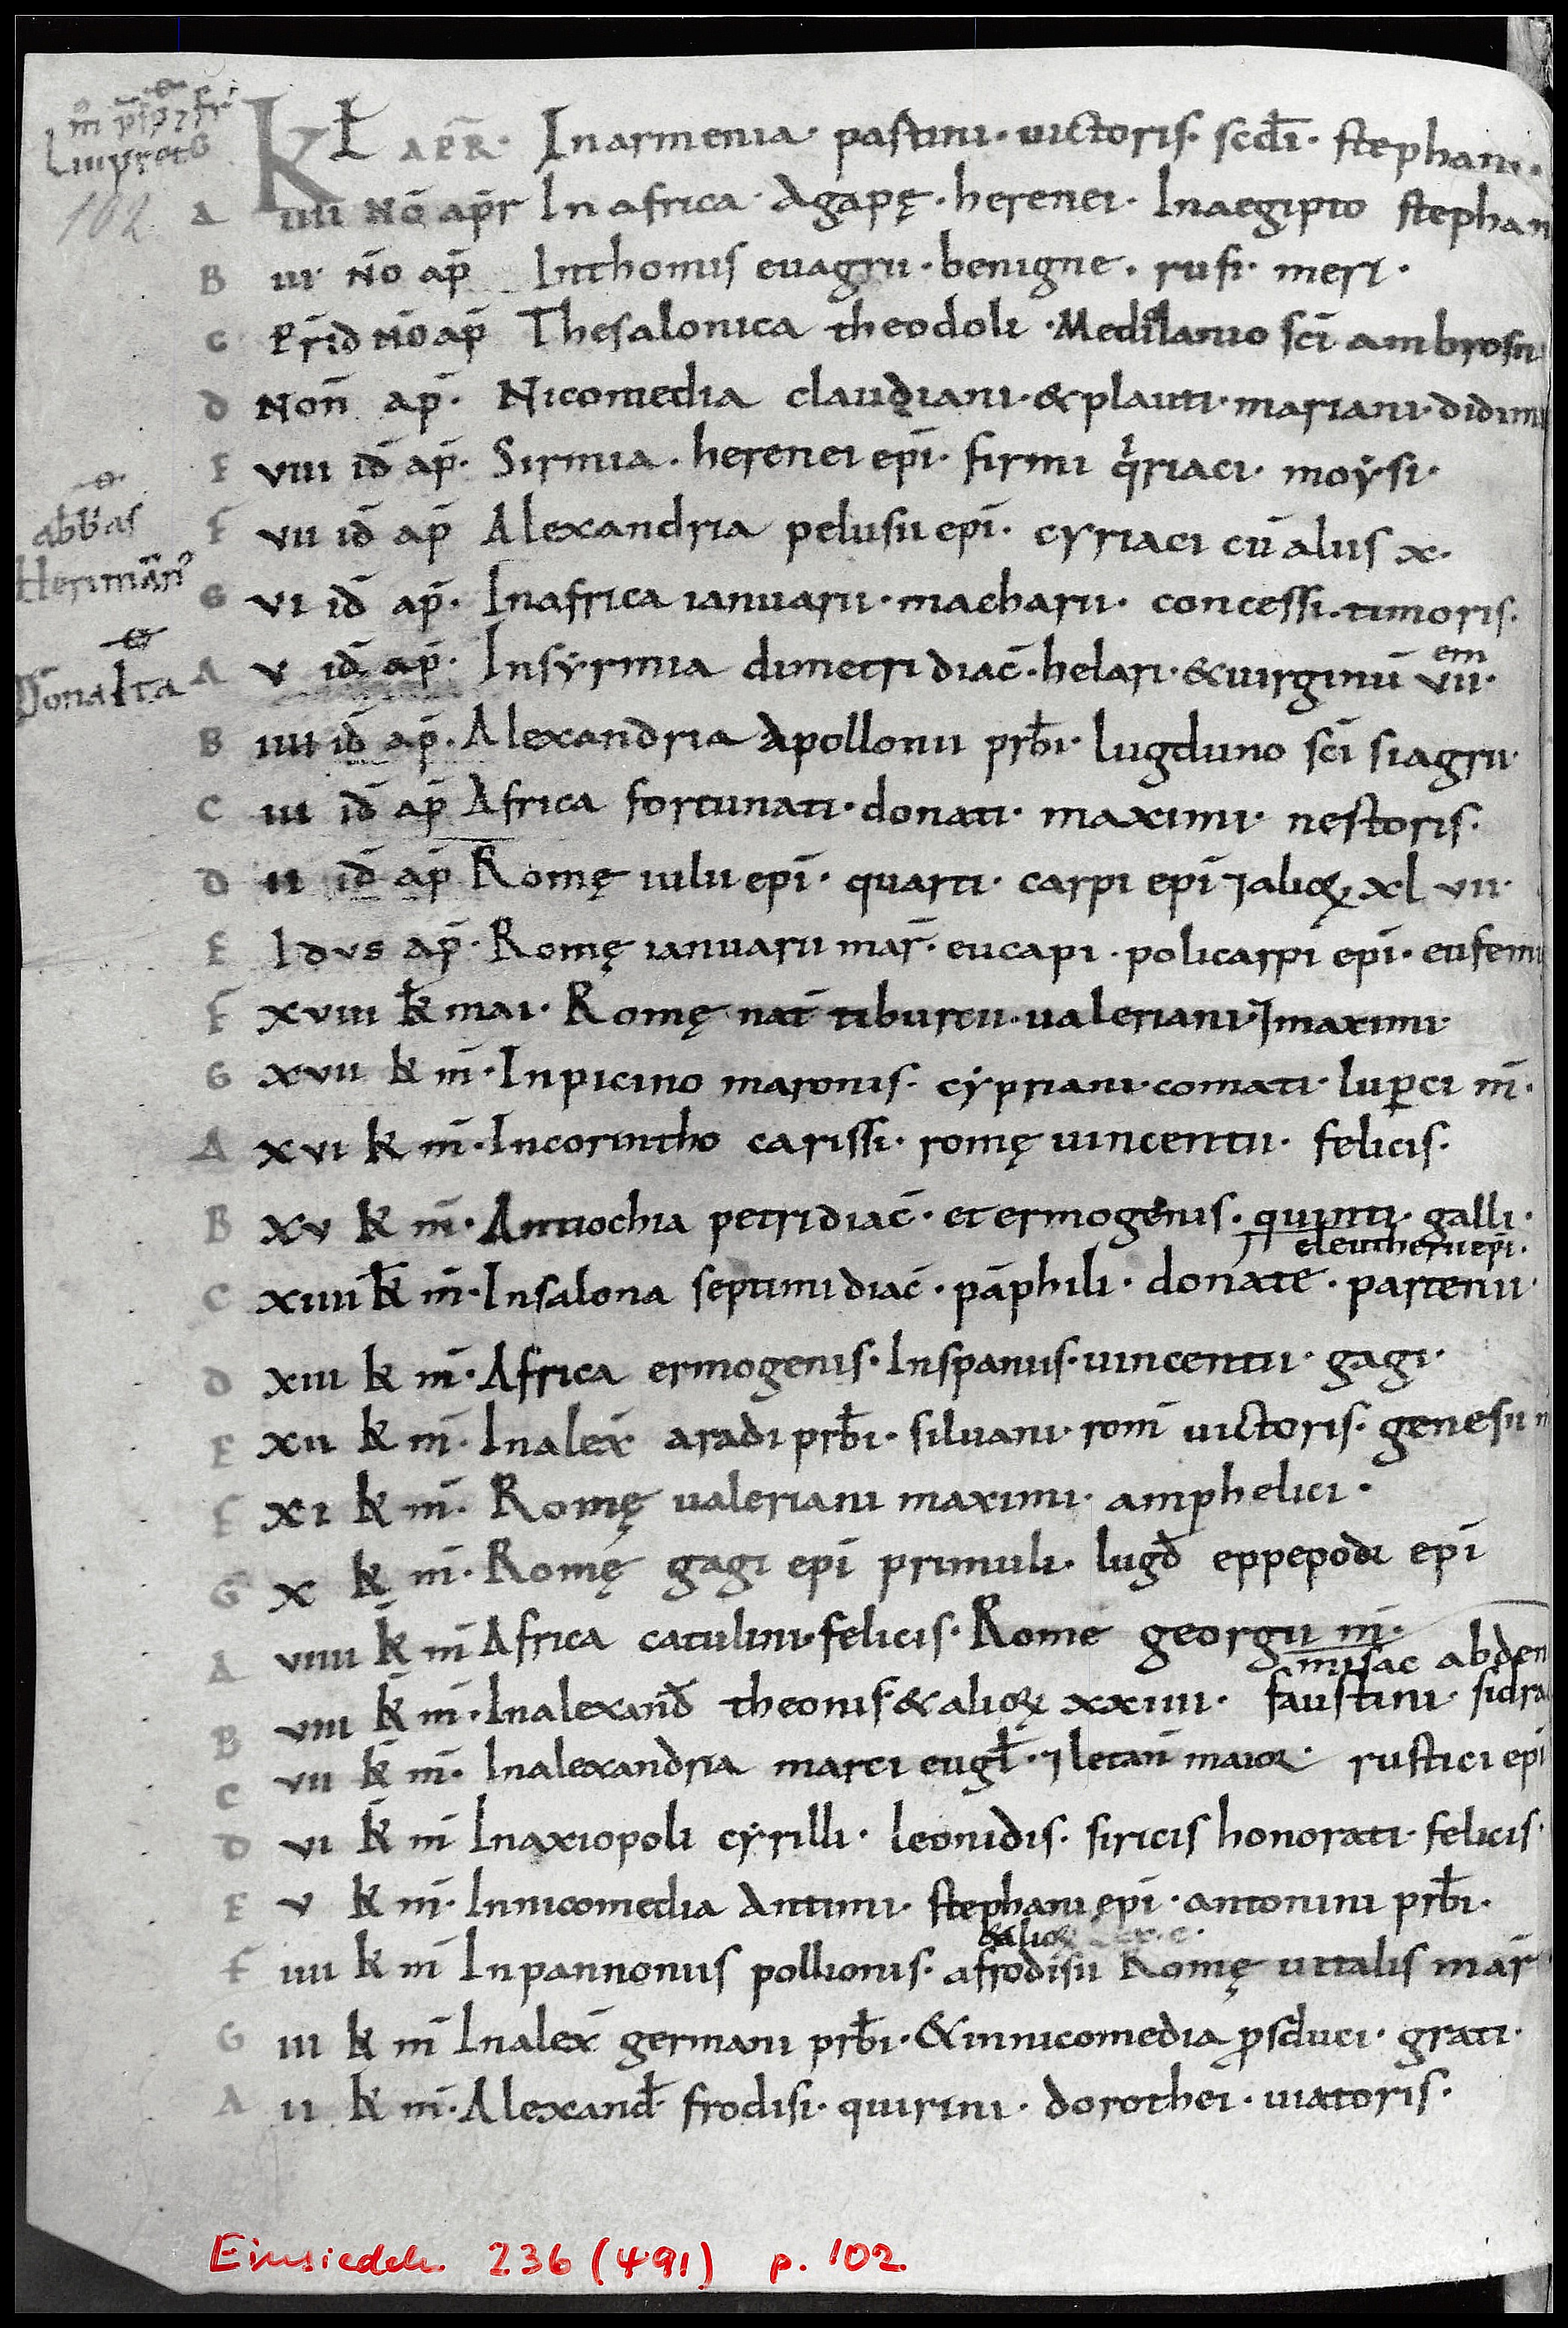 KL̄ APR̄· In armenia· pastini· uictoris· scd̄i· stephani·
102
A iiii No̅ ap̅r In africa· Agapę· herenei· In aegipto stephan
B iii No̅ ap̅ In thomis euagrii· benigne· rufi· meri·
C Pr̅id No̅ ap̅ Thesalonica theodoli· Mediolanio sc̅i ambrosii
D Non̅ ap̅· Nicomedia claudiani· & plauti· mariani· didimi
E viii id̅ ap̅· Sirmia· herenei ep̅i· firmi qiriaci· moysi·
F vii id̅ ap̅ Alexandria pelusii ep̅i· cyriaci cu̅ aliis x·
abbas
Herimān᷒
G vi id̅ ap̅· In africa ianuarii· macharii· concessi· timoris·
A v id̅ ap̅· In syrmia dimetri diac̅· helari· & uirginu̅ vii·
em
B iiii id̅ ap̅· Alexandria Apollonii prb̅i· lugduno sc̅i siagrii·
C iii id̅ ap̅ Africa fortunati· donati· maximi· nestoris·
D ii id̅ ap̅ Romę iulii ep̅i· quarti· carpi ep̅i ⁊ alioꝝ xl vii·
E Idvs ap̅· Romę ianuarii mar̅· eucapi· policarpi ep̅i· eufemi
F xviii k̅ mai· Romę nat̅ tiburtii· ualeriani· ⁊ maximi·
G xvii k m̅· In picino maronis· cypriani· comati· luꝑci m̅·
A xvi k m̅· In corintho carissi· romę uincentii· felicis·
B xv k m̅· Antiochia petri diac̅· et ermogenis· quinti· galli·
eleutherii ep̅i·
C xiiii k̅ m̅· In salona septimi diac̅· pa̅phili· donate· partenii·
D xiii k m̅· Africa ermogenis· In spaniis· uincentii· gagi·
E xii k m̅· In alex̅ aradi prb̅i· siluani· rom̅ uictoris· genesii m
F xi k m̅· Romę ualeriani maximi· amphelici·
G x k m̅· Romę gagi ep̅i primuli· lugd̅ eppepodi ep̅i
A viiii k̅ m̅ Africa catulini· felicis· Rome georgii m̅·
misac abden
B viii k̅ m̅· In alexand̅ theonis· & alioꝝ xxiiii· faustini· sidra
C vii k̅ m̅· In alexandria marci eugl̅· ⁊ letan̅ maioꝝ· rustici ep̅i
D vi k̅ m̅ In axiopoli cyrilli· leonidis· siricis honorati· felicis·
E v k m̅· In nicomedia Antimi· stephani ep̅i· antonini prb̅i·
& alioꝝ
F iiii k m̅ In pannoniis pollionis· afrodisii Romę uitalis mar̅
G iii k m̅ In alex̅ germani prb̅i· & in nicomedia ꝓsduci· grati·
A ii k m̅· Alexand̅· frodisi· quirini· dorothei· uiatoris·
Einsiedeln 236 (491) p. 102